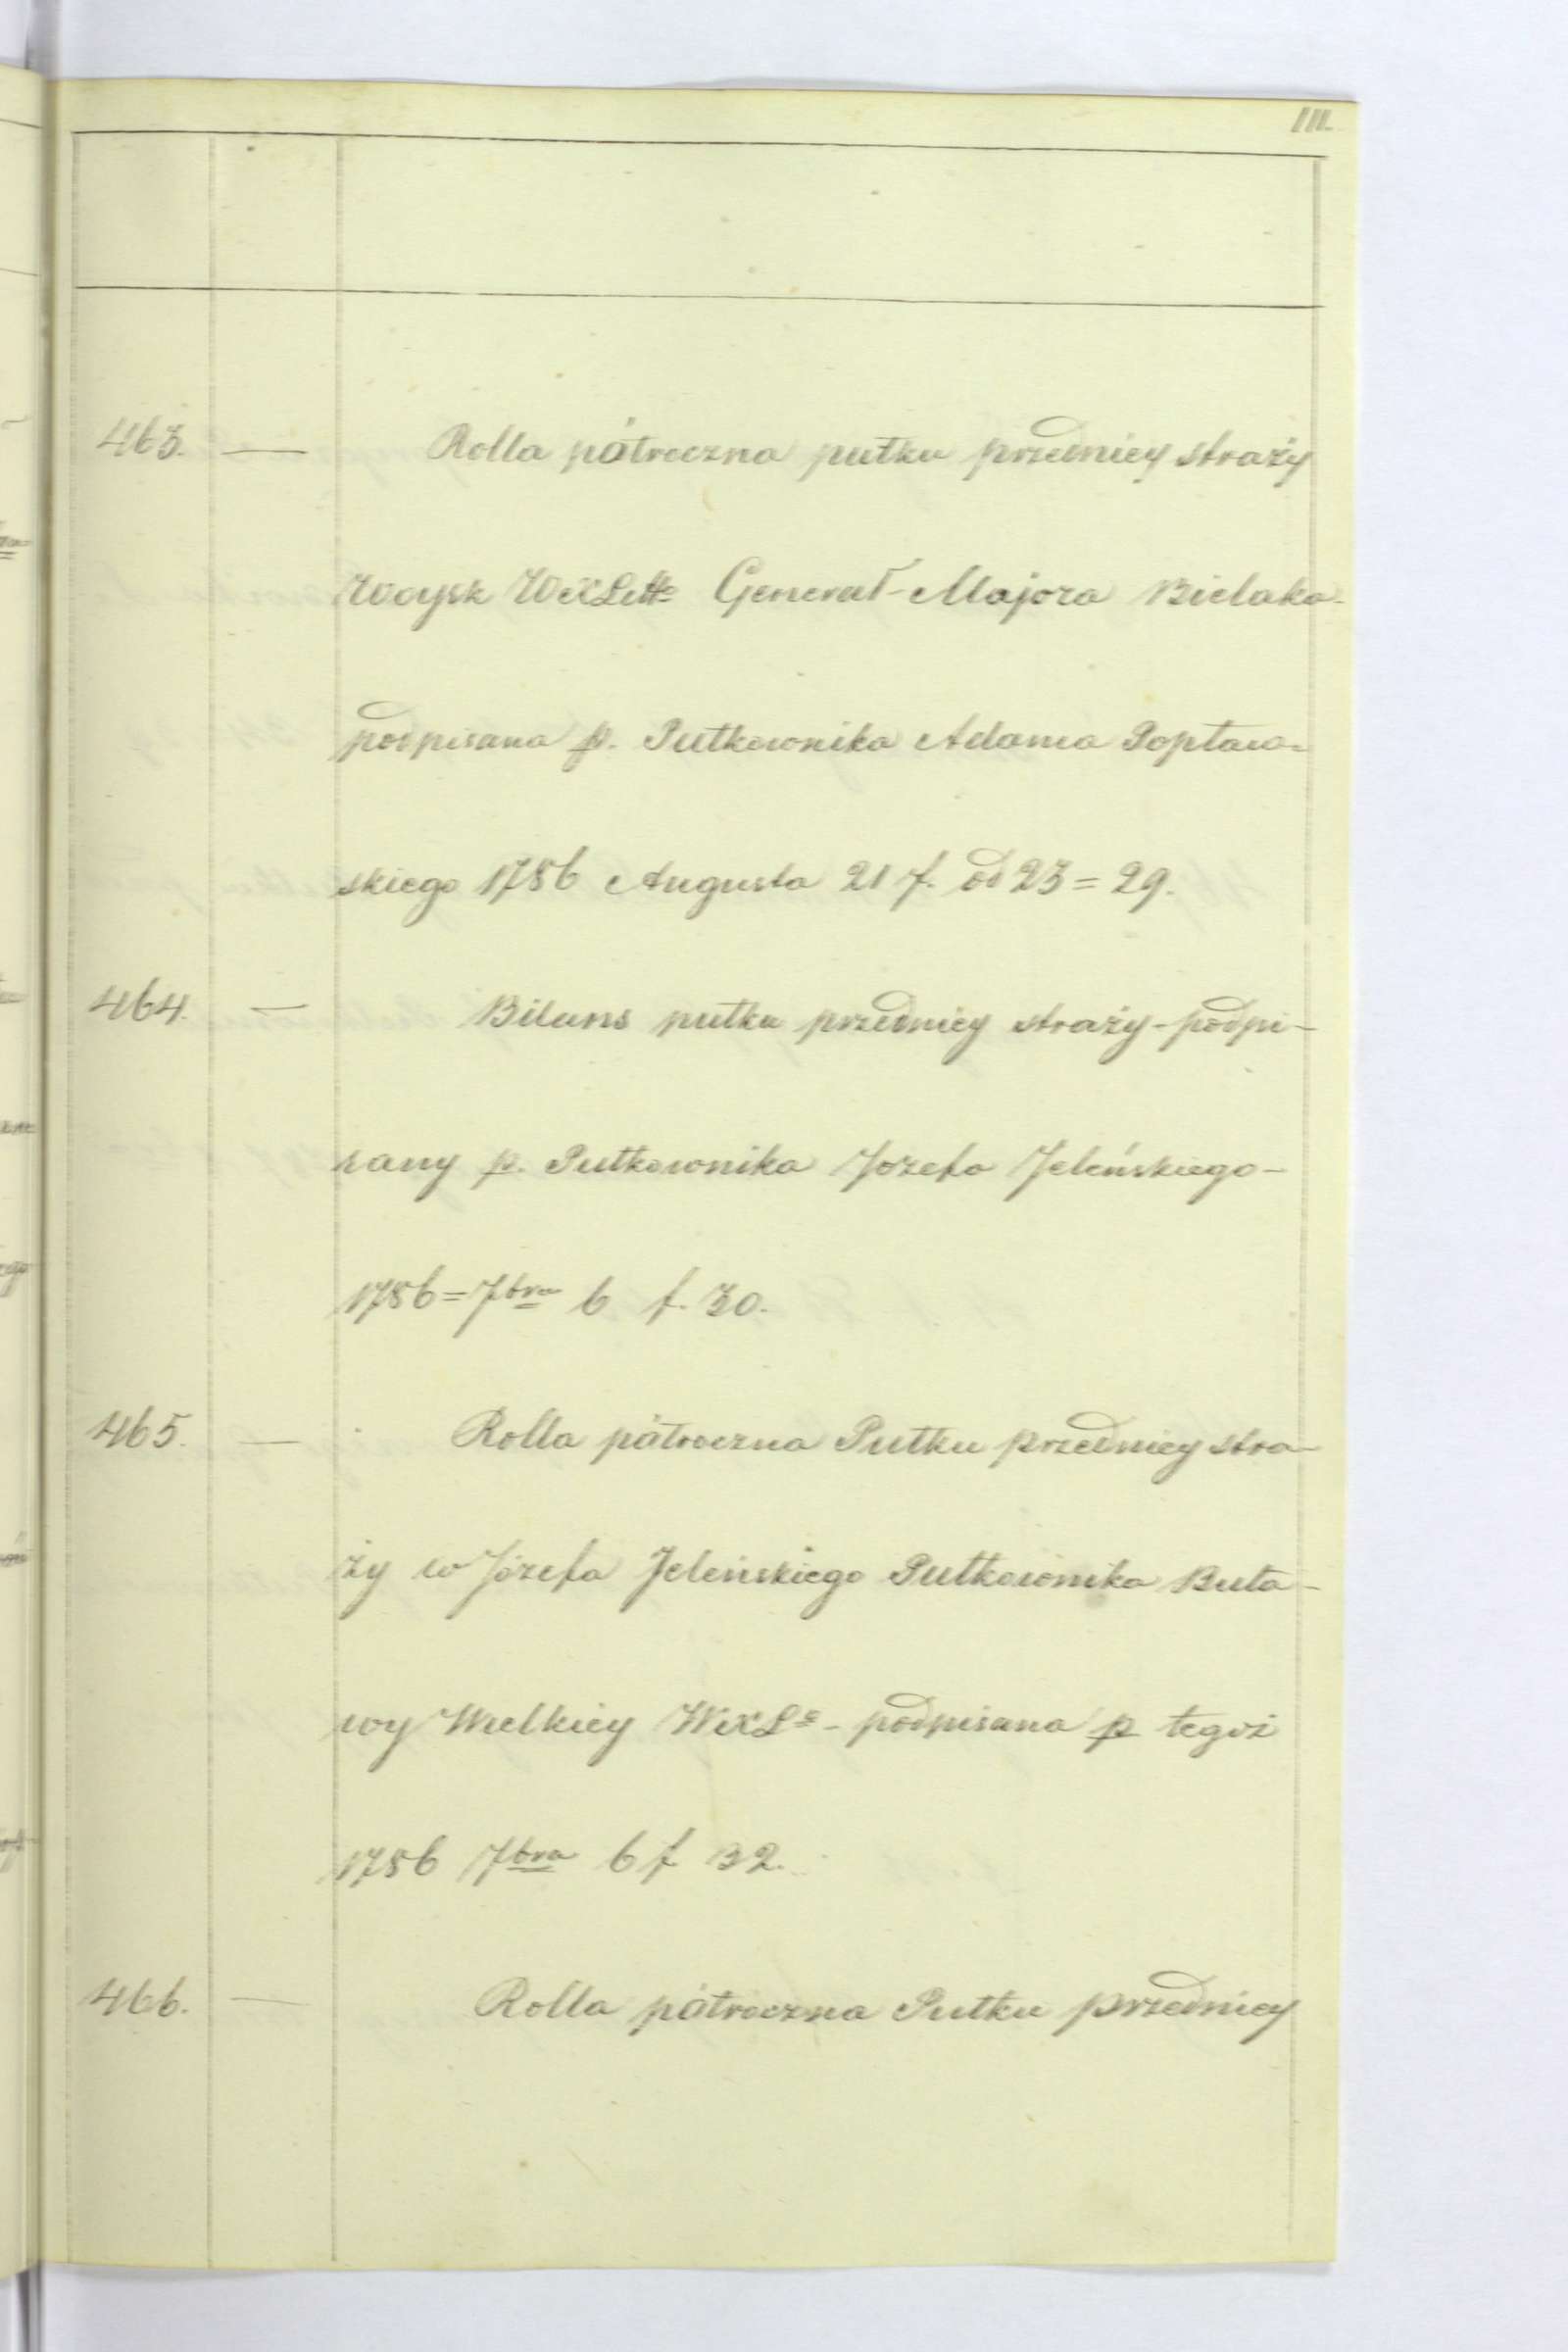 111.
463. — Rolla półroczna pułku przedniey straży
Woysk WXLitt° Generał-Majora Bielaka-
podpisana p. Pułkownika Adama Popław=
skiego 1786 Augusta 21 f. od 23=29.
464. — Bilans pułku przedniey straży-podpi-
sany p. Pułkownika Jozefa Jeleńskiego-
1786=7bra 6 f. 30.
465. — Rolla półroczna Pułku przedniey stra-
ży w Józefa Jeleńskiego Pułkownika Buła-
wy Wielkiey WXL° - podpisana p tegoż
1786 7bra 6 f 32.
466. — Rolla półroczna Pułku przedniey